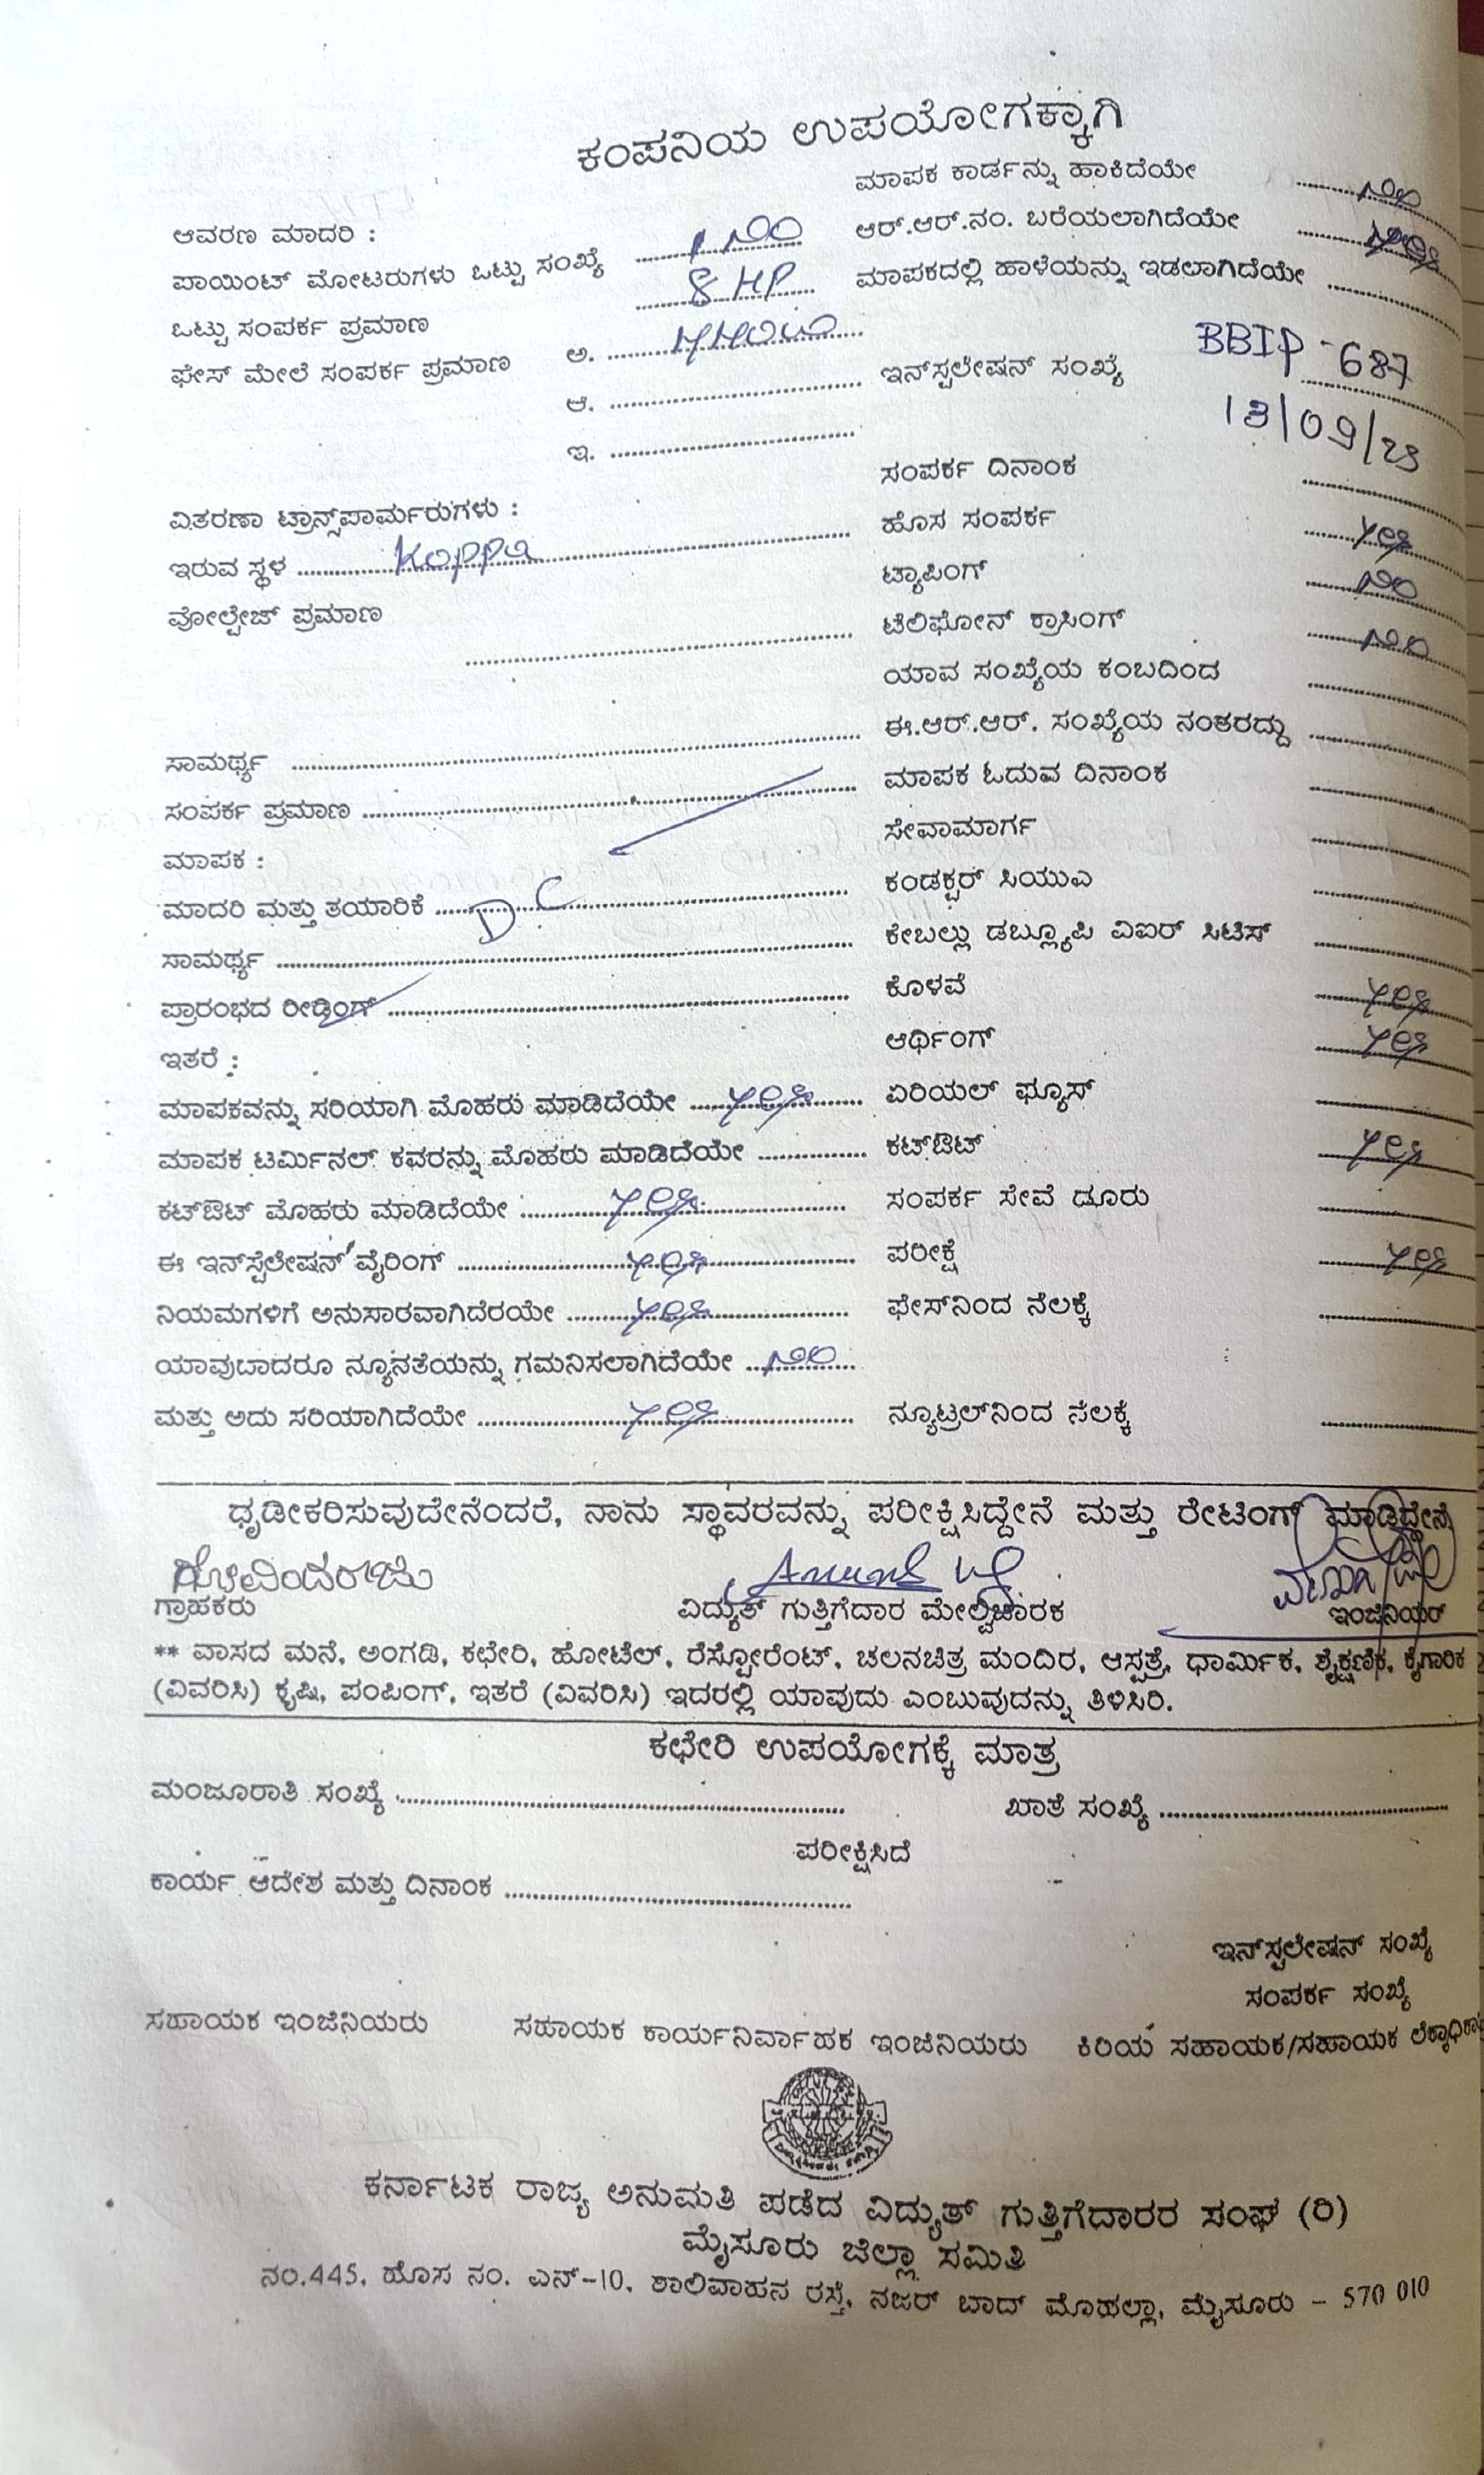 ಕಂಪನಿಯ ಉಪಯೋಗಕ್ಕಾಗಿ
ಆವರಣ ಮಾದರಿ :
ಪಾಯಿಂಟ್ ಮೋಟರುಗಳು ಒಟ್ಟು ಸಂಖ್ಯೆ 1 NO
ಒಟ್ಟು ಸಂಪರ್ಕ ಪ್ರಮಾಣ 8 HP
ಫೇಸ್ ಮೇಲೆ ಸಂಪರ್ಕ ಪ್ರಮಾಣ ಅ.
ಆ.
ಇ.
ವಿತರಣಾ ಟ್ರಾನ್ಸ್‌ಪಾರ್ಮರುಗಳು :
ಇರುವ ಸ್ಥಳ Koppa
ವೋಲ್ಟೇಜ್ ಪ್ರಮಾಣ
ಸಾಮರ್ಥ್ಯ
ಸಂಪರ್ಕ ಪ್ರಮಾಣ
ಮಾಪಕ :
ಮಾದರಿ ಮತ್ತು ತಯಾರಿಕೆ D C
ಸಾಮರ್ಥ್ಯ
ಪ್ರಾರಂಭದ ರೀಡಿಂಗ್
ಇತರೆ :
ಮಾಪಕವನ್ನು ಸರಿಯಾಗಿ ಮೊಹರು ಮಾಡಿದೆಯೇ yes
ಮಾಪಕ ಟರ್ಮಿನಲ್ ಕವರನ್ನು ಮೊಹರು ಮಾಡಿದೆಯೇ
ಕಟ್‌ಔಟ್ ಮೊಹರು ಮಾಡಿದೆಯೇ yes
ಈ ಇನ್‌ಸ್ಟಲೇಷನ್ ವೈರಿಂಗ್ yes
ನಿಯಮಗಳಿಗೆ ಅನುಸಾರವಾಗಿದೆರಯೇ yes
ಯಾವುಬಾದರೂ ನ್ಯೂನತೆಯನ್ನು ಗಮನಿಸಲಾಗಿದೆಯೇ NO
ಮತ್ತು ಅದು ಸರಿಯಾಗಿದೆಯೇ yes
ಮಾಪಕ ಕಾರ್ಡನ್ನು ಹಾಕಿದೆಯೇ NO
ಆರ್.ಆರ್.ನಂ. ಬರೆಯಲಾಗಿದೆಯೇ
ಮಾಪಕದಲ್ಲಿ ಹಾಳೆಯನ್ನು ಇಡಲಾಗಿದೆಯೇ
ಇನ್‌ಸ್ಟಲೇಷನ್ ಸಂಖ್ಯೆ BBIP-687
13/09/23
ಸಂಪರ್ಕ ದಿನಾಂಕ
ಹೊಸ ಸಂಪರ್ಕ yes
ಟ್ಯಾಪಿಂಗ್ NO
ಟೆಲಿಫೋನ್ ಕ್ರಾಸಿಂಗ್ NO
ಯಾವ ಸಂಖ್ಯೆಯ ಕಂಬದಿಂದ
ಈ.ಆರ್.ಆರ್. ಸಂಖ್ಯೆಯ ನಂತರದ್ದು
ಮಾಪಕ ಓದುವ ದಿನಾಂಕ
ಸೇವಾಮಾರ್ಗ
ಕಂಡಕ್ಟರ್ ಸಿಯುಎ
ಕೇಬಲ್ಲು ಡಬ್ಲ್ಯೂಪಿ ವಿಐರ್ ಸಿಟಿಸ್
ಕೊಳವೆ yes
ಆರ್ಥಿಂಗ್ yes
ಏರಿಯಲ್ ಫ್ಯೂಸ್
ಕಟ್‌ಔಟ್ yes
ಸಂಪರ್ಕ ಸೇವೆ ದೂರು
ಪರೀಕ್ಷೆ yes
ಫೇಸ್‌ನಿಂದ ನೆಲಕ್ಕೆ
ನ್ಯೂಟ್ರಲ್‌ನಿಂದ ನೆಲಕ್ಕೆ
ಧೃಡೀಕರಿಸುವುದೇನೆಂದರೆ, ನಾನು ಸ್ಥಾವರವನ್ನು ಪರೀಕ್ಷಿಸಿದ್ದೇನೆ ಮತ್ತು ರೇಟಿಂಗ್ ಮಾಡಿದ್ದೇನೆ
ಗೋವಿಂದರಾಜು
ಗ್ರಾಹಕರು ವಿದ್ಯುತ್ ಗುತ್ತಿಗೆದಾರ ಮೇಲ್ವಿಚಾರಕ ಇಂಜಿನಿಯರ್
** ವಾಸದ ಮನೆ, ಅಂಗಡಿ, ಕಛೇರಿ, ಹೋಟೆಲ್, ರೆಸ್ಟೋರೆಂಟ್, ಚಲನಚಿತ್ರ ಮಂದಿರ, ಆಸ್ಪತ್ರೆ, ಧಾರ್ಮಿಕ, ಶೈಕ್ಷಣಿಕ, ಕೈಗಾರಿಕ
(ವಿವರಿಸಿ) ಕೃಷಿ, ಪಂಪಿಂಗ್, ಇತರೆ (ವಿವರಿಸಿ) ಇದರಲ್ಲಿ ಯಾವುದು ಎಂಬುವುದನ್ನು ತಿಳಿಸಿರಿ.
ಕಛೇರಿ ಉಪಯೋಗಕ್ಕೆ ಮಾತ್ರ
ಮಂಜೂರಾತಿ ಸಂಖ್ಯೆ ಖಾತೆ ಸಂಖ್ಯೆ
ಪರೀಕ್ಷಿಸಿದೆ
ಕಾರ್ಯ ಆದೇಶ ಮತ್ತು ದಿನಾಂಕ
ಇನ್‌ಸ್ಟಲೇಷನ್ ಸಂಖ್ಯೆ
ಸಂಪರ್ಕ ಸಂಖ್ಯೆ
ಸಹಾಯಕ ಇಂಜಿನಿಯರು ಸಹಾಯಕ ಕಾರ್ಯನಿರ್ವಾಹಕ ಇಂಜಿನಿಯರು ಕಿರಿಯ ಸಹಾಯಕ/ಸಹಾಯಕ
ಕರ್ನಾಟಕ ರಾಜ್ಯ ಅನುಮತಿ ಪಡೆದ ವಿದ್ಯುತ್ ಗುತ್ತಿಗೆದಾರರ ಸಂಘ (ರಿ)
ಮೈಸೂರು ಜಿಲ್ಲಾ ಸಮಿತಿ
ನಂ.445, ಹೊಸ ನಂ. ಎನ್-10, ಶಾಲಿವಾಹನ ರಸ್ತೆ, ನಜರ್ ಬಾದ್ ಮೊಹಲ್ಲಾ, ಮೈಸೂರು - 570 010